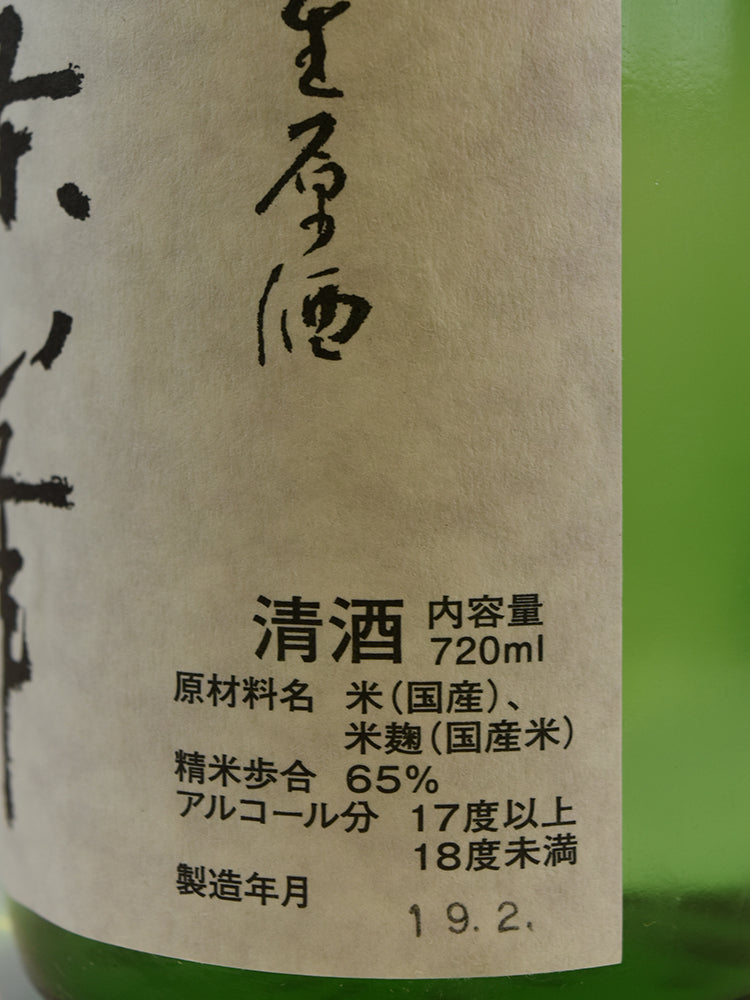 生原酒
清酒 内容量
720ml
原材料名 米(国産)、
米麹(国産米)
精米歩合 65%
アルコール分 17度以上
18度未満
製造年月 19.2.